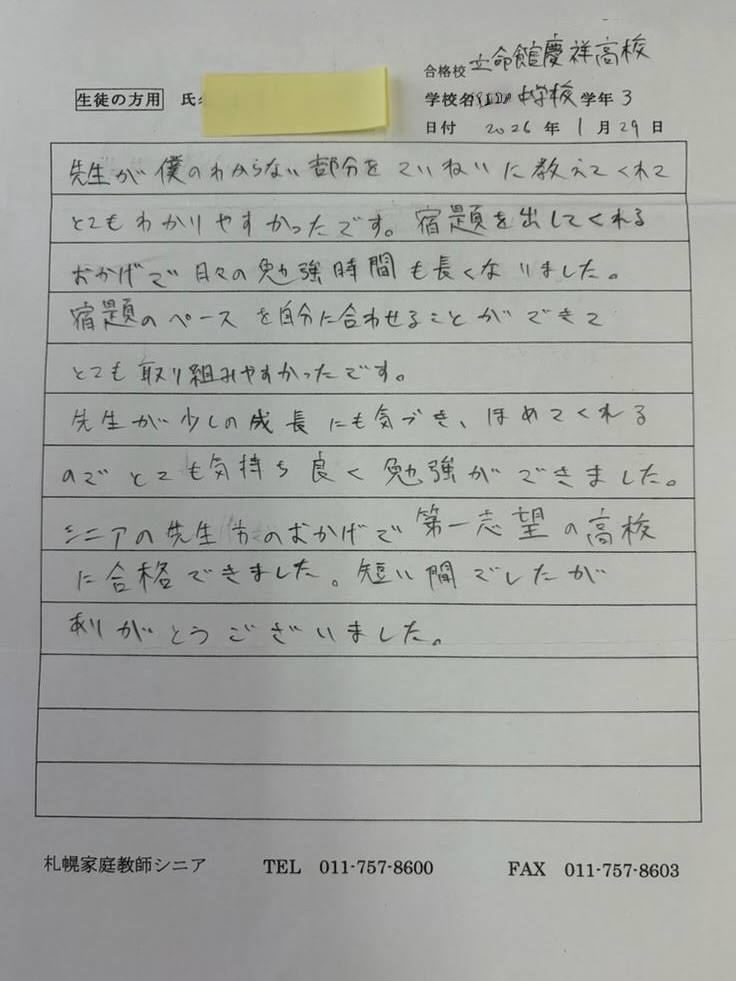 合格校 立命館慶祥高校
生徒の方用 氏
学校名 中学校 学年 3
日付 2026 年 1 月 29 日
先生が僕のわからない部分をていねいに教えてくれて
とてもわかりやすかったです。宿題を出してくれる
おかげで日々の勉強時間も長くなりました。
宿題のペースを自分に合わせることができて
とても取り組みやすかったです。
先生が少しの成長にも気づき、ほめてくれる
のでとても気持ち良く勉強ができました。
シニアの先生方のおかげで第一志望の高校
に合格できました。短い間でしたが
ありがとうございました。
札幌家庭教師シニア TEL 011-757-8600 FAX 011-757-8603